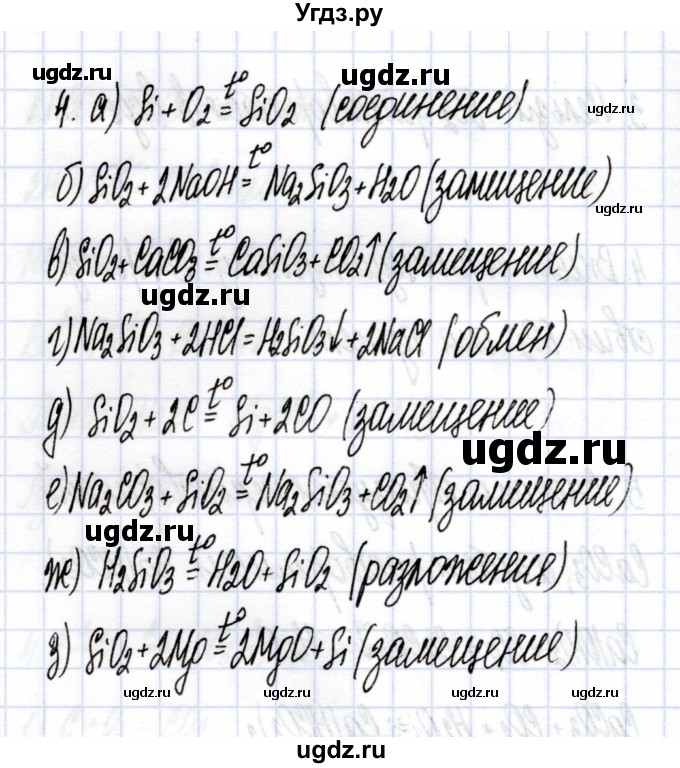 Угдз.ру
ugdz.ru
ugdz.ru
4. а) Si + O2 =t° SiO2 (соединение)
б) SiO2 + 2NaOH =t° Na2SiO3 + H2O (замещение)
ugdz.ru
в) SiO2 + CaCO3 =t° CaSiO3 + CO2↑ (замещение)
ugdz.ru
г) Na2SiO3 + 2HCl = H2SiO3↓ + 2NaCl (обмен)
д) SiO2 + 2C =t° Si + 2CO (замещение)
ugdz.ru
е) Na2CO3 + SiO2 =t° Na2SiO3 + CO2↑ (замещение)
ugdz.ru
ж) H2SiO3 =t° H2O + SiO2 (разложение)
з) SiO2 + 2Mg =t° 2MgO + Si (замещение)
ugdz.ru ugdz.ru ugdz.ru ugdz.ru
ugdz.ru